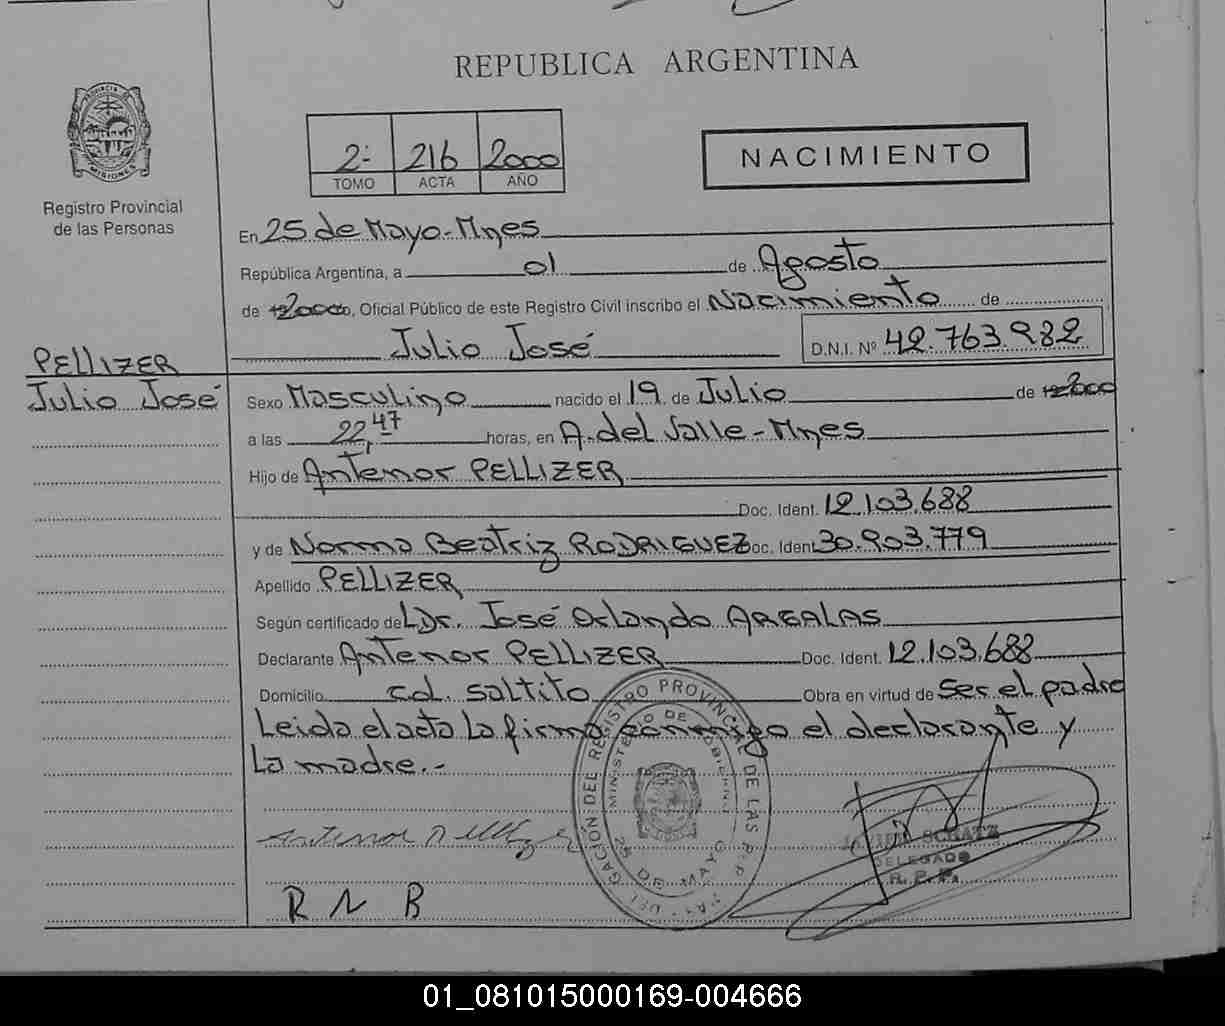 REPUBLICA ARGENTINA
PROVINCIA DE
MISIONES
Registro Provincial
de las Personas
2º 216 2000
TOMO ACTA AÑO
NACIMIENTO
En 25 de Mayo - Mnes
República Argentina, a 01 de Agosto
de 2000, Oficial Público de este Registro Civil inscribo el Nacimiento de
Julio José D.N.I. Nº 42.763.982
PELLIZER
Julio José
Sexo Masculino nacido el 19 de Julio de 2000
a las 22,47 horas, en A. del Valle - Mnes
Hijo de Antenor PELLIZER
Doc. Ident. 12.103.688
y de Norma Beatriz RODRIGUEZ Doc. Ident. 30.903.779
Apellido PELLIZER
Según certificado de L Dr. José Orlando ARGALAS
Declarante Antenor PELLIZER Doc. Ident. 12.103.688
Domicilio col. saltito Obra en virtud de ser el padre
Leida el acta la firma conmigo el declarante y
la madre.-
DELEGACIÓN DEL REGISTRO PROVINCIAL DE LAS PERSONAS
MINISTERIO DE GOBIERNO
25 DE MAYO
Antenor Pellizer
JAVIER SCHATZ
DELEGADO
R. P. P.
R N B
01_081015000169-004666